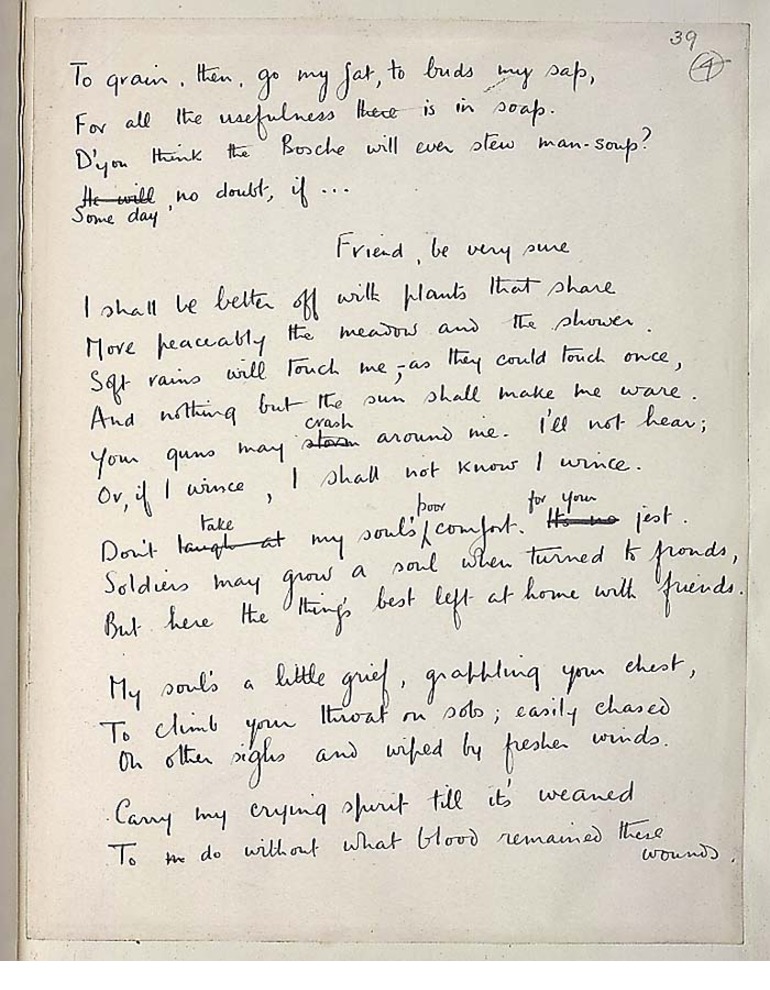 39
4
To grain, then, go my fat, to buds my sap,
For all the usefulness there is in soap.
D'you think the Bosche will ever stew man-soup?
He will no doubt, if ...
Some day,
Friend, be very sure
I shall be better off with plants that share
More peaceably the meadow and the shower.
Soft rains will touch me,- as they could touch once,
And nothing but the sun shall make me ware.
crash
Your guns may storm around me. I'll not hear;
Or, if I wince, I shall not know I wince.
take poor for your
Don't laugh at my soul's comfort. Its no jest.
Soldiers may grow a soul when turned to fronds,
But here the thing's best left at home with friends.
My soul's a little grief, grappling your chest,
To climb your throat on sobs; easily chased
On other sighs and wiped by fresher winds.
Carry my crying spirit till it's weaned
To me do without what blood remained these
wounds.